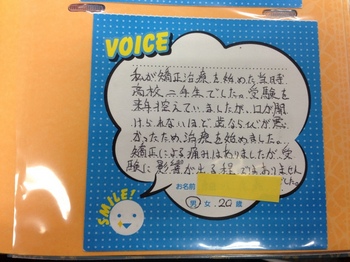 VOICE
私が矯正治療を始めた当時
高校二年生でした。受験を
来年控えていましたが、口が開
けられないほど歯ならびが悪
かったため、治療を始めました。
矯正による痛みはありましたが、受
験に影響が出る程ではありません
でした。
お名前
男 女 20 歳
SMILE!